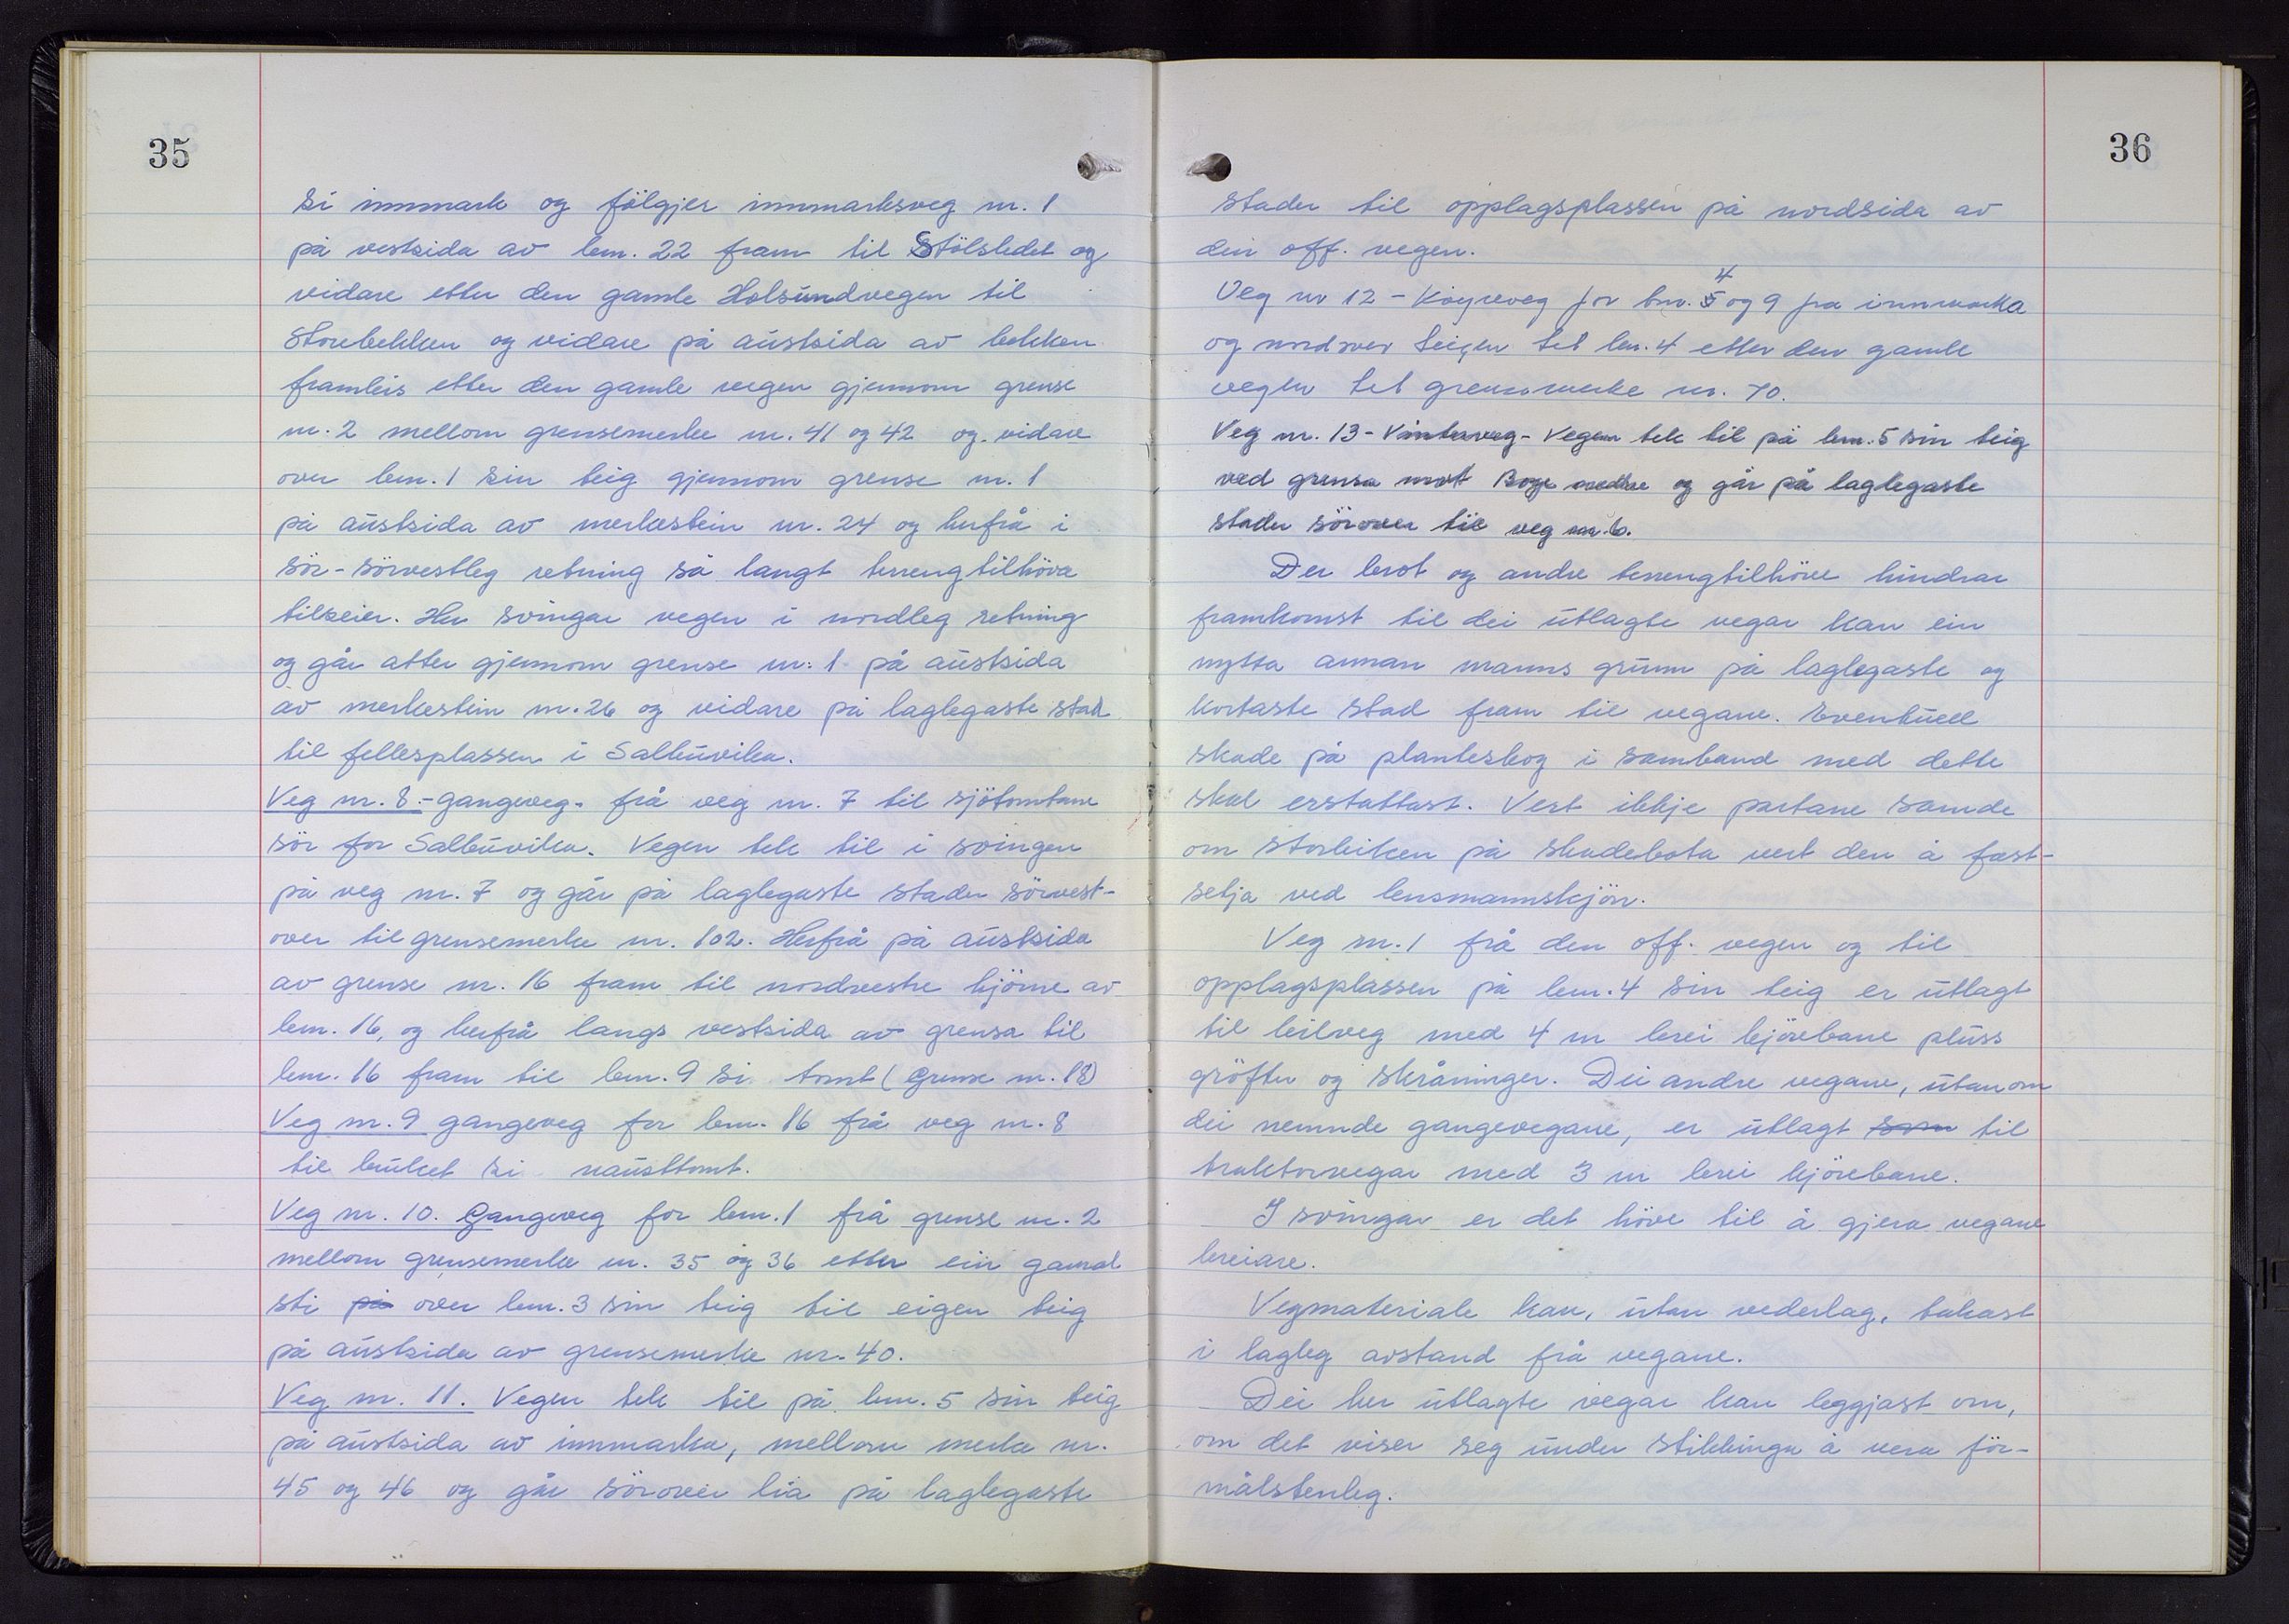 35
si innmark og fölgjer innmarksveg nr. 1
på vestsida av bnr. 22 fram til Stölsledet og
vidare etter den gamle Holsundvegen til
Storebekken og vidare på austsida av bekken
framleis etter den gamle vegen gjennom grense
nr. 2 mellom grensemerke nr. 41 og 42 og vidare
over bnr. 1 sin teig gjennom grense nr. 1
på austsida av merkestein nr. 24 og herfrå i
sör-sörvestleg retning så langt terrengtilhöva
tilseier. Her svingar vegen i nordleg retning
og går atter gjennom grense nr. 1 på austsida
av merkestein nr. 26 og vidare på laglegaste stad
til fellesplassen i Salbuvika.
Veg nr. 8.- gangeveg. frå veg nr. 7 til sjötomtane
sör for Salbuvika. Vegen tek til i svingen
på veg nr. 7 og går på laglegaste stader sörvest-
over til grensemerke nr. 102. Herfrå på austsida
av grense nr. 16 fram til nordvestre hjörne av
bnr. 16, og herfrå langs vestsida av grensa til
bnr. 16 fram til bnr. 9 si tomt (Grense nr. 18)
Veg nr. 9 gangeveg for bnr. 16 frå veg nr. 8
til bruket si nausttomt.
Veg nr. 10. Gangeveg for bnr. 1 frå grense nr. 2
mellom grensemerke nr. 35 og 36 etter ein gamal
sti på over bnr. 3 sin teig til eigen teig
på austsida av grensemerke nr. 40.
Veg nr. 11. Vegen tek til på bnr. 5 sin teig
på austsida av innmarka, mellom merke nr.
45 og 46 og går sörover lia på laglegaste
36
stader til opplagsplassen på nordsida av
den off. vegen.
4
Veg nr 12 - Köyreveg for bnr. 5 og 9 fra innmarka
og nordover teigen til bnr. 4 etter den gamle
vegen til grensemerke nr. 70.
Veg nr. 13 - Vinterveg - Vegen tek til på bnr. 5 sin teig
ved grensa mot Boge nedre og går på laglegaste
stader sörover til veg nr. 6.
Der brot og andre terrengtilhöve hindrar
framkomst til dei utlagte vegar kan ein
nytta annan manns grunn på laglegaste og
kortaste stad fram til vegane. Eventuell
skade på planteskog i samband med dette
skal erstattast. Vert ikkje partane samde
om storleiken på skadebota vert den å fast-
setja ved lensmannskjön.
Veg nr. 1 frå den off. vegen og til
opplagsplassen på bnr. 4 sin teig er utlagt
til bilveg med 4 m brei kjörebane pluss
gröfter og skråninger. Dei andre vegane, utanom
dei nemnde gangevegane, er utlagt som til
traktorvegar med 3 m brei kjörebane.
I svingar er det höve til å gjera vegane
breiare.
Vegmateriale kan, utan vederlag, takast
i lagleg avstand frå vegane.
Dei her utlagte vegar kan leggjast om,
om det viser seg under stikkinga å vera för-
målstenleg.